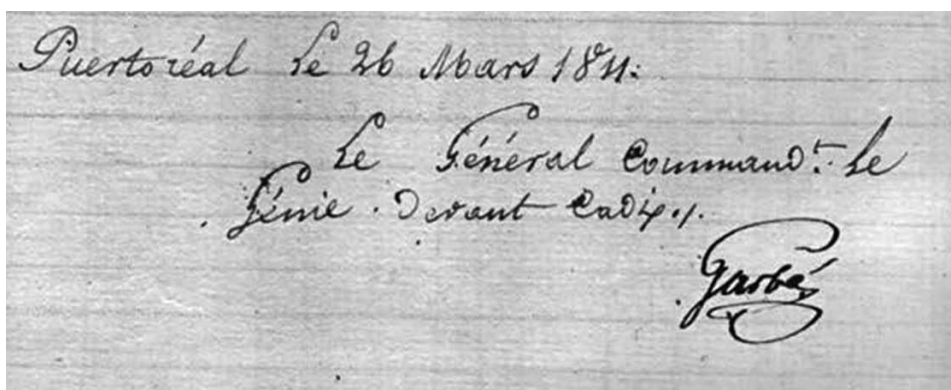 Puertoréal Le 26 Mars 1811.
Le Général Command.t Le
Génie Devant Cadix ./.
Garbé